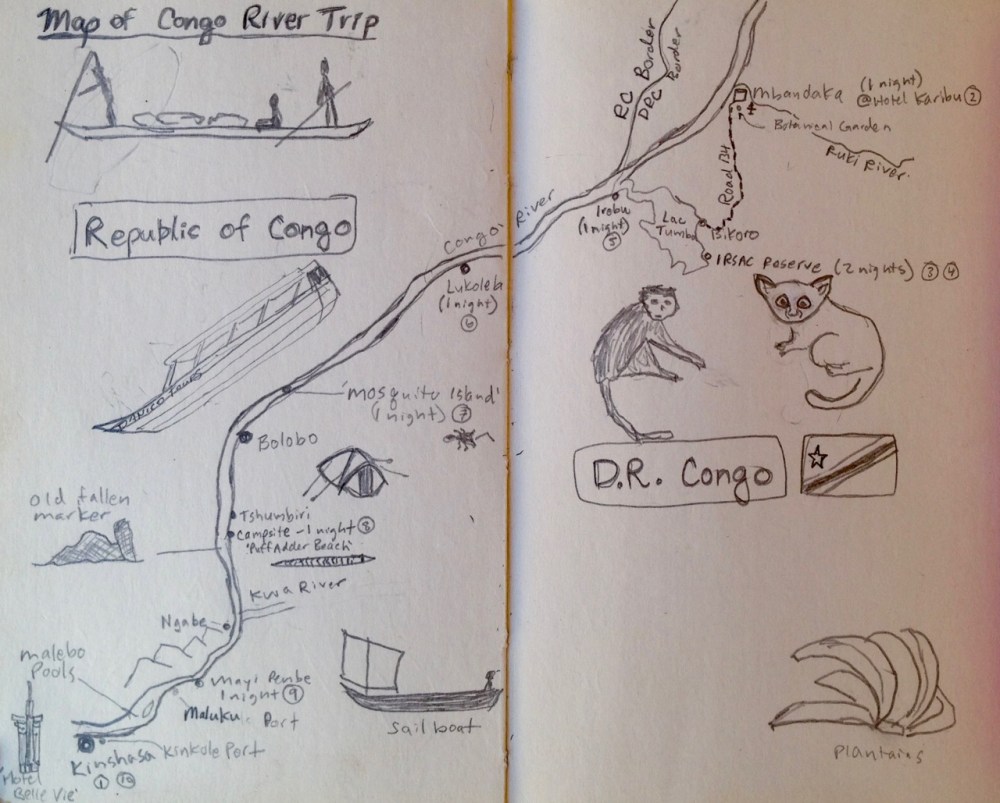 Map of Congo River Trip
Republic of Congo
DANICO TOURS
Congo
River
Lukolela
(1 night)
6
'Mosquito Island'
(1 night) 7
Bolobo
old fallen
marker
Tshumbiri
Campsite - 1 night 8
'Puff Adder Beach'
Kwa River
Ngabe
malebo
Pools
Mayi Pembe
1 night 9
Maluku Port
Sail boat
Kinshasa Kinkole Port
1 10
Hotel
'Belle Vie'
RC Border
DRC Border
Mbandaka (1 night)
@Hotel Karibu 2
Botanical Garden
Ruki River
Road
Irebu
(1 night)
5
Lac
Tumba
Bikoro
IRSAC Reserve (2 nights) 3 4
D.R. Congo
Plantains